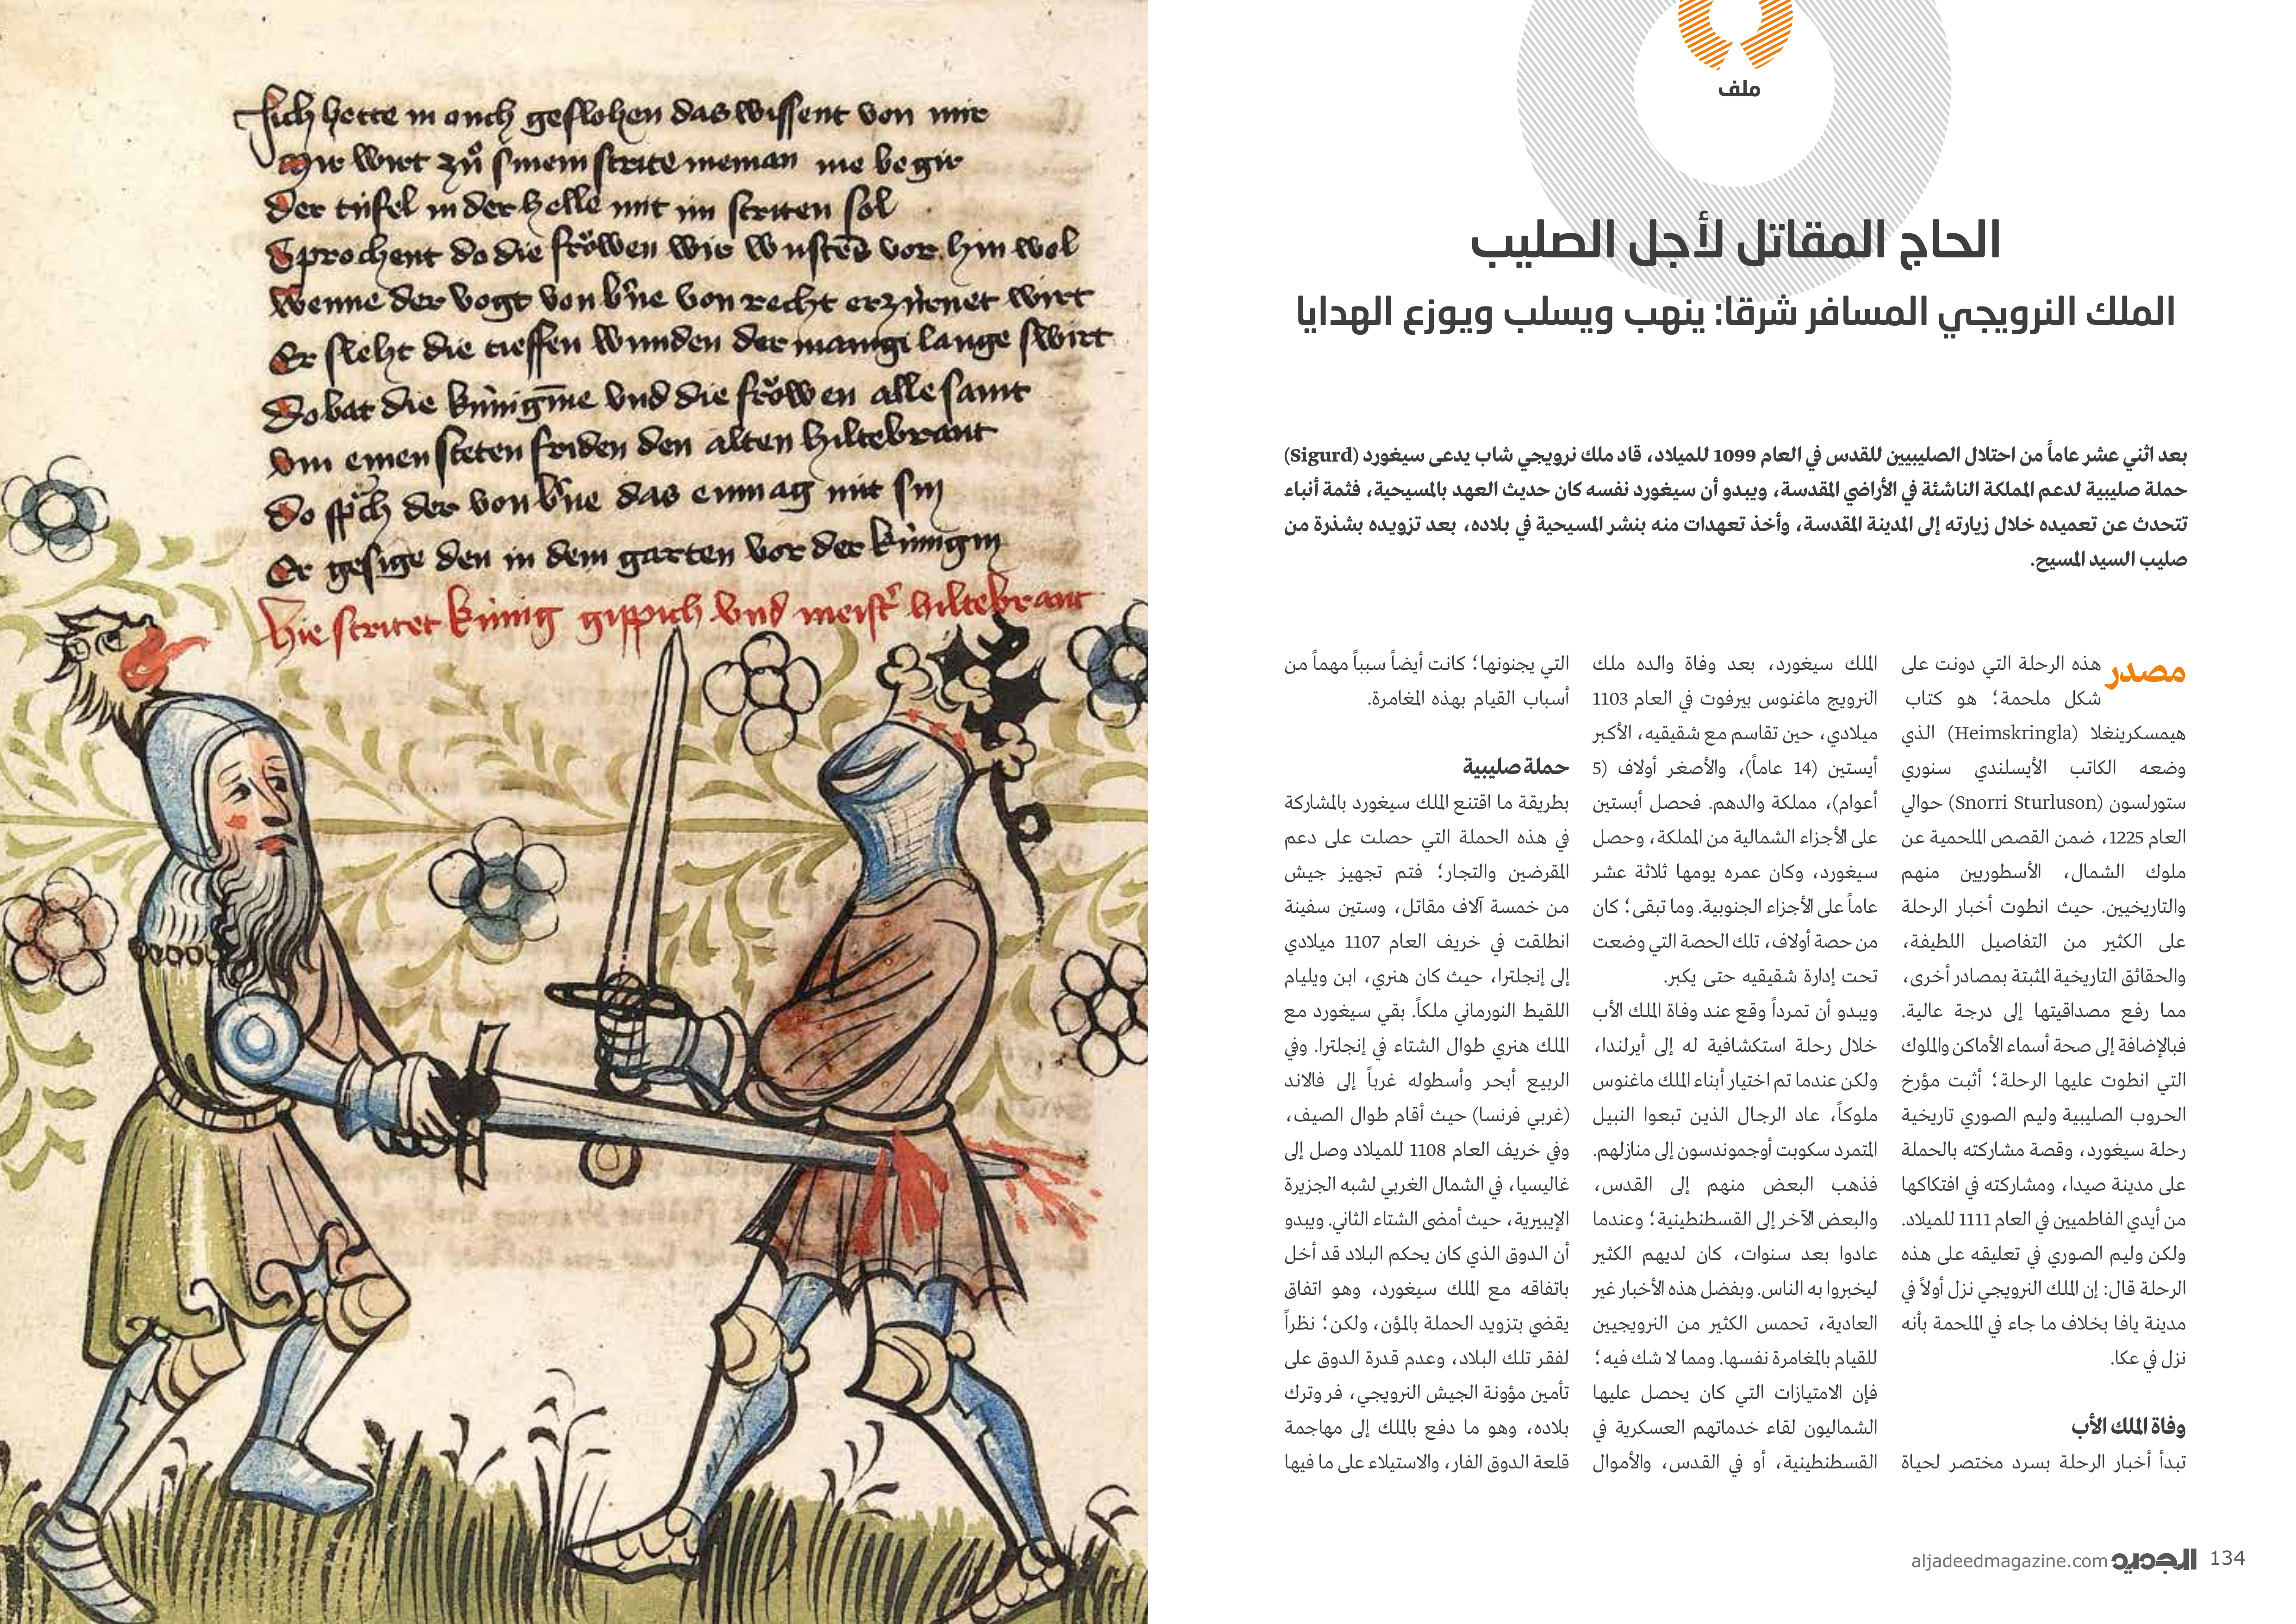 ملف
الحاج المقاتل لأجل الصليب
الملك النرويجي المسافر شرقا: ينهب ويسلب ويوزع الهدايا
بعد اثني عشر عاماً من احتلال الصليبيين للقدس في العام 1099 للميلاد، قاد ملك نرويجي شاب يدعى سيغورد (Sigurd)
حملة صليبية لدعم المملكة الناشئة في الأراضي المقدسة، ويبدو أن سيغورد نفسه كان حديث العهد بالمسيحية، فثمة أنباء
تتحدث عن تعميده خلال زيارته إلى المدينة المقدسة، وأخذ تعهدات منه بنشر المسيحية في بلاده، بعد تزويده بشذرة من
صليب السيد المسيح.
مصدر هذه الرحلة التي دونت على
شكل ملحمة؛ هو كتاب
هيمسكرينغلا (Heimskringla) الذي
وضعه الكاتب الأيسلندي سنوري
ستورلسون (Snorri Sturluson) حوالي
العام 1225، ضمن القصص الملحمية عن
ملوك الشمال، الأسطوريين منهم
والتاريخيين. حيث انطوت أخبار الرحلة
على الكثير من التفاصيل اللطيفة،
والحقائق التاريخية المثبتة بمصادر أخرى،
مما رفع مصداقيتها إلى درجة عالية.
فبالإضافة إلى صحة أسماء الأماكن والملوك
التي انطوت عليها الرحلة؛ أثبت مؤرخ
الحروب الصليبية وليم الصوري تاريخية
رحلة سيغورد، وقصة مشاركته بالحملة
على مدينة صيدا، ومشاركته في افتكاكها
من أيدي الفاطميين في العام 1111 للميلاد.
ولكن وليم الصوري في تعليقه على هذه
الرحلة قال: إن الملك النرويجي نزل أولاً في
مدينة يافا بخلاف ما جاء في الملحمة بأنه
نزل في عكا.
وفاة الملك الأب
تبدأ أخبار الرحلة بسرد مختصر لحياة
الملك سيغورد، بعد وفاة والده ملك
النرويج ماغنوس بيرفوت في العام 1103
ميلادي، حين تقاسم مع شقيقيه، الأكبر
أيستين (14 عاماً)، والأصغر أولاف (5
أعوام)، مملكة والدهم. فحصل أبستين
على الأجزاء الشمالية من المملكة، وحصل
سيغورد، وكان عمره يومها ثلاثة عشر
عاماً على الأجزاء الجنوبية. وما تبقى؛ كان
من حصة أولاف، تلك الحصة التي وضعت
تحت إدارة شقيقيه حتى يكبر.
ويبدو أن تمرداً وقع عند وفاة الملك الأب
خلال رحلة استكشافية له إلى أيرلندا،
ولكن عندما تم اختيار أبناء الملك ماغنوس
ملوكاً، عاد الرجال الذين تبعوا النبيل
المتمرد سكوبت أوجموندسون إلى منازلهم.
فذهب البعض منهم إلى القدس،
والبعض الآخر إلى القسطنطينية؛ وعندما
عادوا بعد سنوات، كان لديهم الكثير
ليخبروا به الناس. وبفضل هذه الأخبار غير
العادية، تحمس الكثير من النرويجيين
للقيام بالمغامرة نفسها. ومما لا شك فيه؛
فإن الامتيازات التي كان يحصل عليها
الشماليون لقاء خدماتهم العسكرية في
القسطنطينية، أو في القدس، والأموال
التي يجنونها؛ كانت أيضاً سبباً مهماً من
أسباب القيام بهذه المغامرة.
حملة صليبية
بطريقة ما اقتنع الملك سيغورد بالمشاركة
في هذه الحملة التي حصلت على دعم
المقرضين والتجار؛ فتم تجهيز جيش
من خمسة آلاف مقاتل، وستين سفينة
انطلقت في خريف العام 1107 ميلادي
إلى إنجلترا، حيث كان هنري، ابن ويليام
اللقيط النورماني ملكاً. بقي سيغورد مع
الملك هنري طوال الشتاء في إنجلترا. وفي
الربيع أبحر وأسطوله غرباً إلى فالاند
(غربي فرنسا) حيث أقام طوال الصيف،
وفي خريف العام 1108 للميلاد وصل إلى
غاليسيا، في الشمال الغربي لشبه الجزيرة
الإيبيرية، حيث أمضى الشتاء الثاني. ويبدو
أن الدوق الذي كان يحكم البلاد قد أخل
باتفاقه مع الملك سيغورد، وهو اتفاق
يقضي بتزويد الحملة بالمؤن، ولكن؛ نظراً
لفقر تلك البلاد، وعدم قدرة الدوق على
تأمين مؤونة الجيش النرويجي، فر وترك
بلاده، وهو ما دفع بالملك إلى مهاجمة
قلعة الدوق الفار، والاستيلاء على ما فيها
aljadeedmagazine.com الجديد 134
hette in ouch geflohen das wissent von mir
Mir wirt zů sinem strite nieman nie begir
Der tüfel in der helle mit im striten sol
Sprochent do die fröwen wir wusten vor hin wol
Wenne der vogt von b'ne von recht erzürnet wirt
Er slecht die tieffen wunden der manigi lange swirt
Do bat die künigine vnd die fröwen alle samt
vm einen steten friden den alten hiltebrant
Do sprich der von b'ne das enmag nit sin
Er gesige den in dem garten vor der künigin
Hie stritet künig gippich vnd meist' hiltebrant